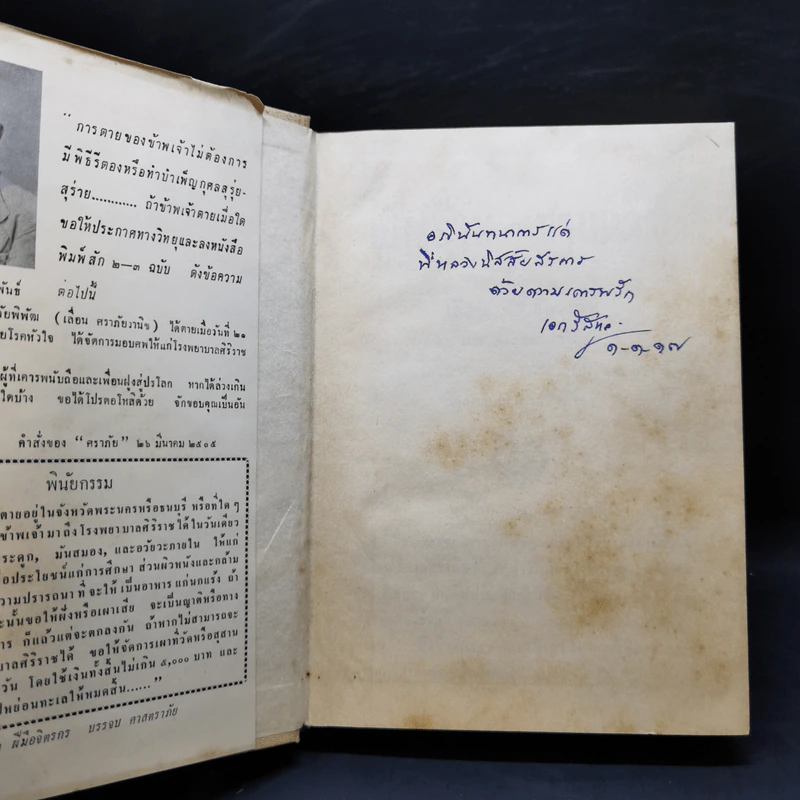 " การตายของข้าพเจ้าไม่ต้องการ
มีพิธีรีตองหรือทำบำเพ็ญกุศลสุรุ่ย-
สุร่าย............ ถ้าข้าพเจ้าตายเมื่อใด
ขอให้ประกาศทางวิทยุและลงหนังสือ
พิมพ์สัก ๒—๓ ฉบับ ดังข้อความ
ต่อไปนี้
ัยพิพัฒ (เลื่อน ศราภัยวานิช) ได้ตายเมื่อวันที่ ๒๑
ยโรคหัวใจ ได้จัดการมอบศพให้แก่โรงพยาบาลศิริราช
ผู้ที่เคารพนับถือและเพื่อนฝูงสู่ปรโลก หากได้ล่วงเกิน
ใดบ้าง ขอได้โปรดอโหสิด้วย จักขอบคุณเป็นอัน
คำสั่งของ "ศราภัย" ๒๖ มีนาคม ๒๕๐๕
พินัยกรรม
ตายอยู่ในจังหวัดพระนครหรือธนบุรี หรือที่ใด ๆ
ข้าพเจ้ามาถึงโรงพยาบาลศิริราชได้ในวันเดียว
ระดูก, มันสมอง, และอวัยวะภายใน ให้แก่
อประโยชน์แก่การศึกษา ส่วนผิวหนังและกล้าม
วามปรารถนา ที่ จะให้ เป็นอาหาร แก่นกแร้ง ถ้า
ะนั้นขอให้ฝังหรือเผาเสีย จะเป็นญาติหรือทาง
าร ก็แล้วแต่จะตกลงกัน ถ้าหากไม่สามารถจะ
าลศิริราชได้ ขอให้จัดการเผาที่วัดหรือสุสาน
วัน โดยใช้เงินทั้งสิ้นไม่เกิน ๕,๐๐๐ บาท และ
ปหย่อนทะเลให้หมดสิ้น......"
ฝีมือจิตรกร บรรจบ ศาสตราภัย
อภินันทนาการแด่
พี่หลวงนิสสัยสรการ
ด้วยความเคารพรัก
๑-๑-๑๗